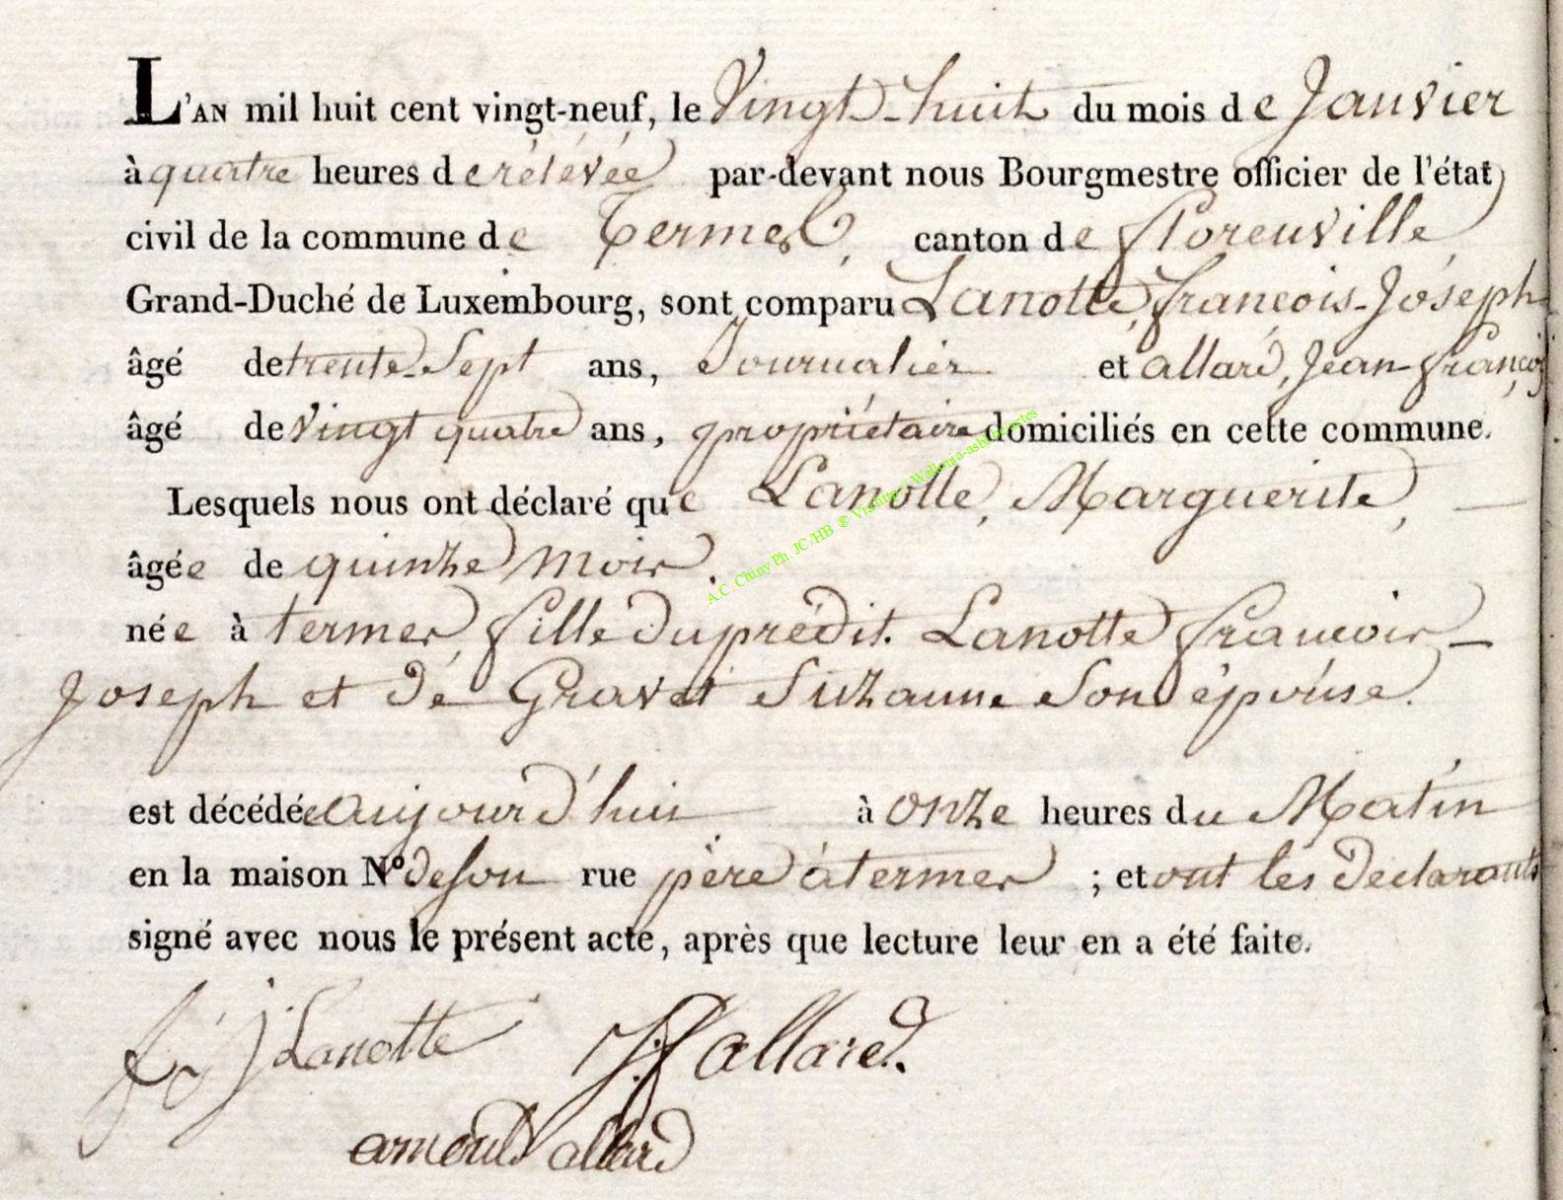 L'AN mil huit cent vingt-neuf, le Vingt-huit du mois de Janvier
à quatre heures de rélévée par-devant nous Bourgmestre officier de l'état
civil de la commune de Termes, canton de florenville,
Grand-Duché de Luxembourg, sont comparu Lanotte, françois-Joséph
âgé de trente-Sept ans, Journalier et allard, Jean-françois
âgé de Vingt quatre ans, propriétaire domiciliés en cette commune.
Lesquels nous ont déclaré que Lanotte, Marguerite,
âgée de quinze mois.
née à termes, fille du prédit. Lanotte françois-
Joseph et dé Gravet Suzanne Son épouse.
est décédée aujourd'hui à onze heures du Matin
en la maison N.º de son rue père à termes ; et ont les déclarants
signé avec nous le présent acte, après que lecture leur en a été faite.
f. j Lanotte J. f allard.
arnould allard
A.C. Chiny Ph JC/HB ©